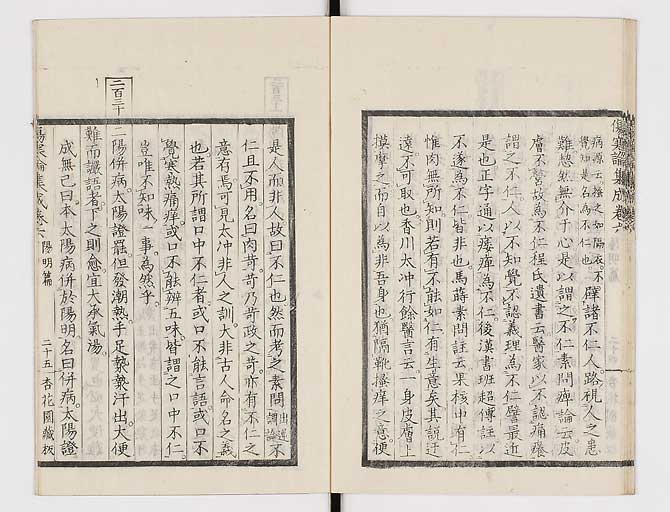 病源云搔之如隔衣不
覺知是名為不仁也
譬諸不仁人路視人之患
難愁然無介于心是以謂之不仁素問痺論云皮
膚不營故為不仁程氏遺書云醫家以不認痛癢
謂之不仁人以不知覺不認義理為不仁譬最近
是也正字通以痿痺為不仁後漢書班超傳註以
不遂為不仁皆非也馬蒔素問註云果核中有仁
惟肉無所知則若有不能如仁有生意矣其説迂
遠不可取也香川太冲行餘醫言云一身皮膚上
摸摩之而自以為非吾身也猶隔靴搔痒之意便
是人而非人故曰不仁也然而考之素問
出逆調論
不
仁且不用名曰肉苛苛乃苛政之苛亦有不仁之
意有焉可見太冲非人之訓大非古人命名之義
也若其所謂口中不仁者或口不能言語或口不
覺寒熱痛痒或口不能辨五味皆謂之口中不仁
豈唯不知味一事為然乎
二百三十
二陽併病太陽證罷但發潮熱手足漐漐汗出大便
難而讝語者下之則愈宜大承氣湯
成無己曰本太陽病併於陽明名曰併病太陽證
傷寒論集成卷六
陽明篇
二十五
杏花園藏板